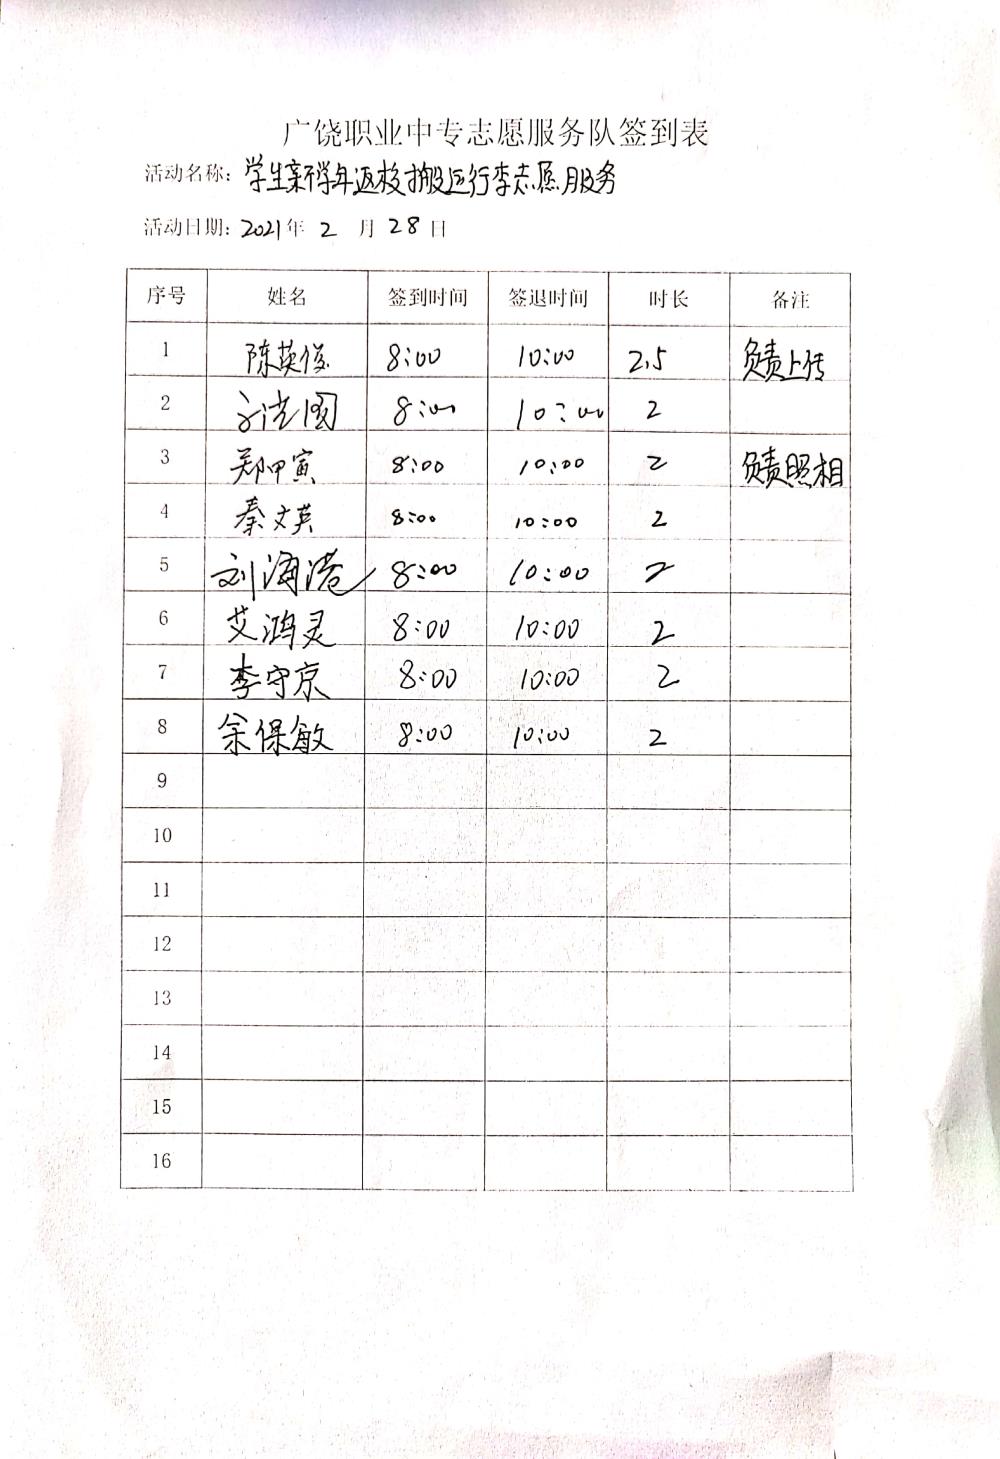 广饶职业中专志愿服务队签到表
活动名称：学生新学年返校搬运行李志愿服务
活动日期：2021年 2 月 28 日
序号 姓名 签到时间 签退时间 时长 备注
1 陈英俊 8:00 10:00 2.5 负责上传
2 8:00 10:00 2
3 郑甲寅 8:00 10:00 2 负责照相
4 秦文英 8:00 10:00 2
5 刘海港 8:00 10:00 2
6 艾鸿灵 8:00 10:00 2
7 李守京 8:00 10:00 2
8 余保敏 8:00 10:00 2
9
10
11
12
13
14
15
16